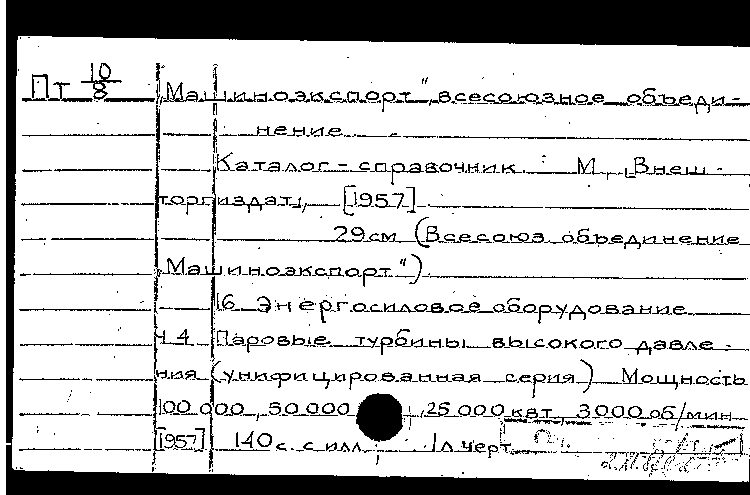 Пт 10/8 „Машиноэкспорт", всесоюзное объеди-
нение.
Каталог-справочник. М., Внеш-
торгиздат, [1957].
29 см (Всесоюз. объединение
„Машиноэкспорт").
16. Энергосиловое оборудование.
Ч. 4. Паровые турбины высокого давле-
ния (унифицированная серия). Мощность
100 000, 50 000, 25 000 квт, 3000 об/мин.
[1957] 140 с. с илл. 1 л. черт.